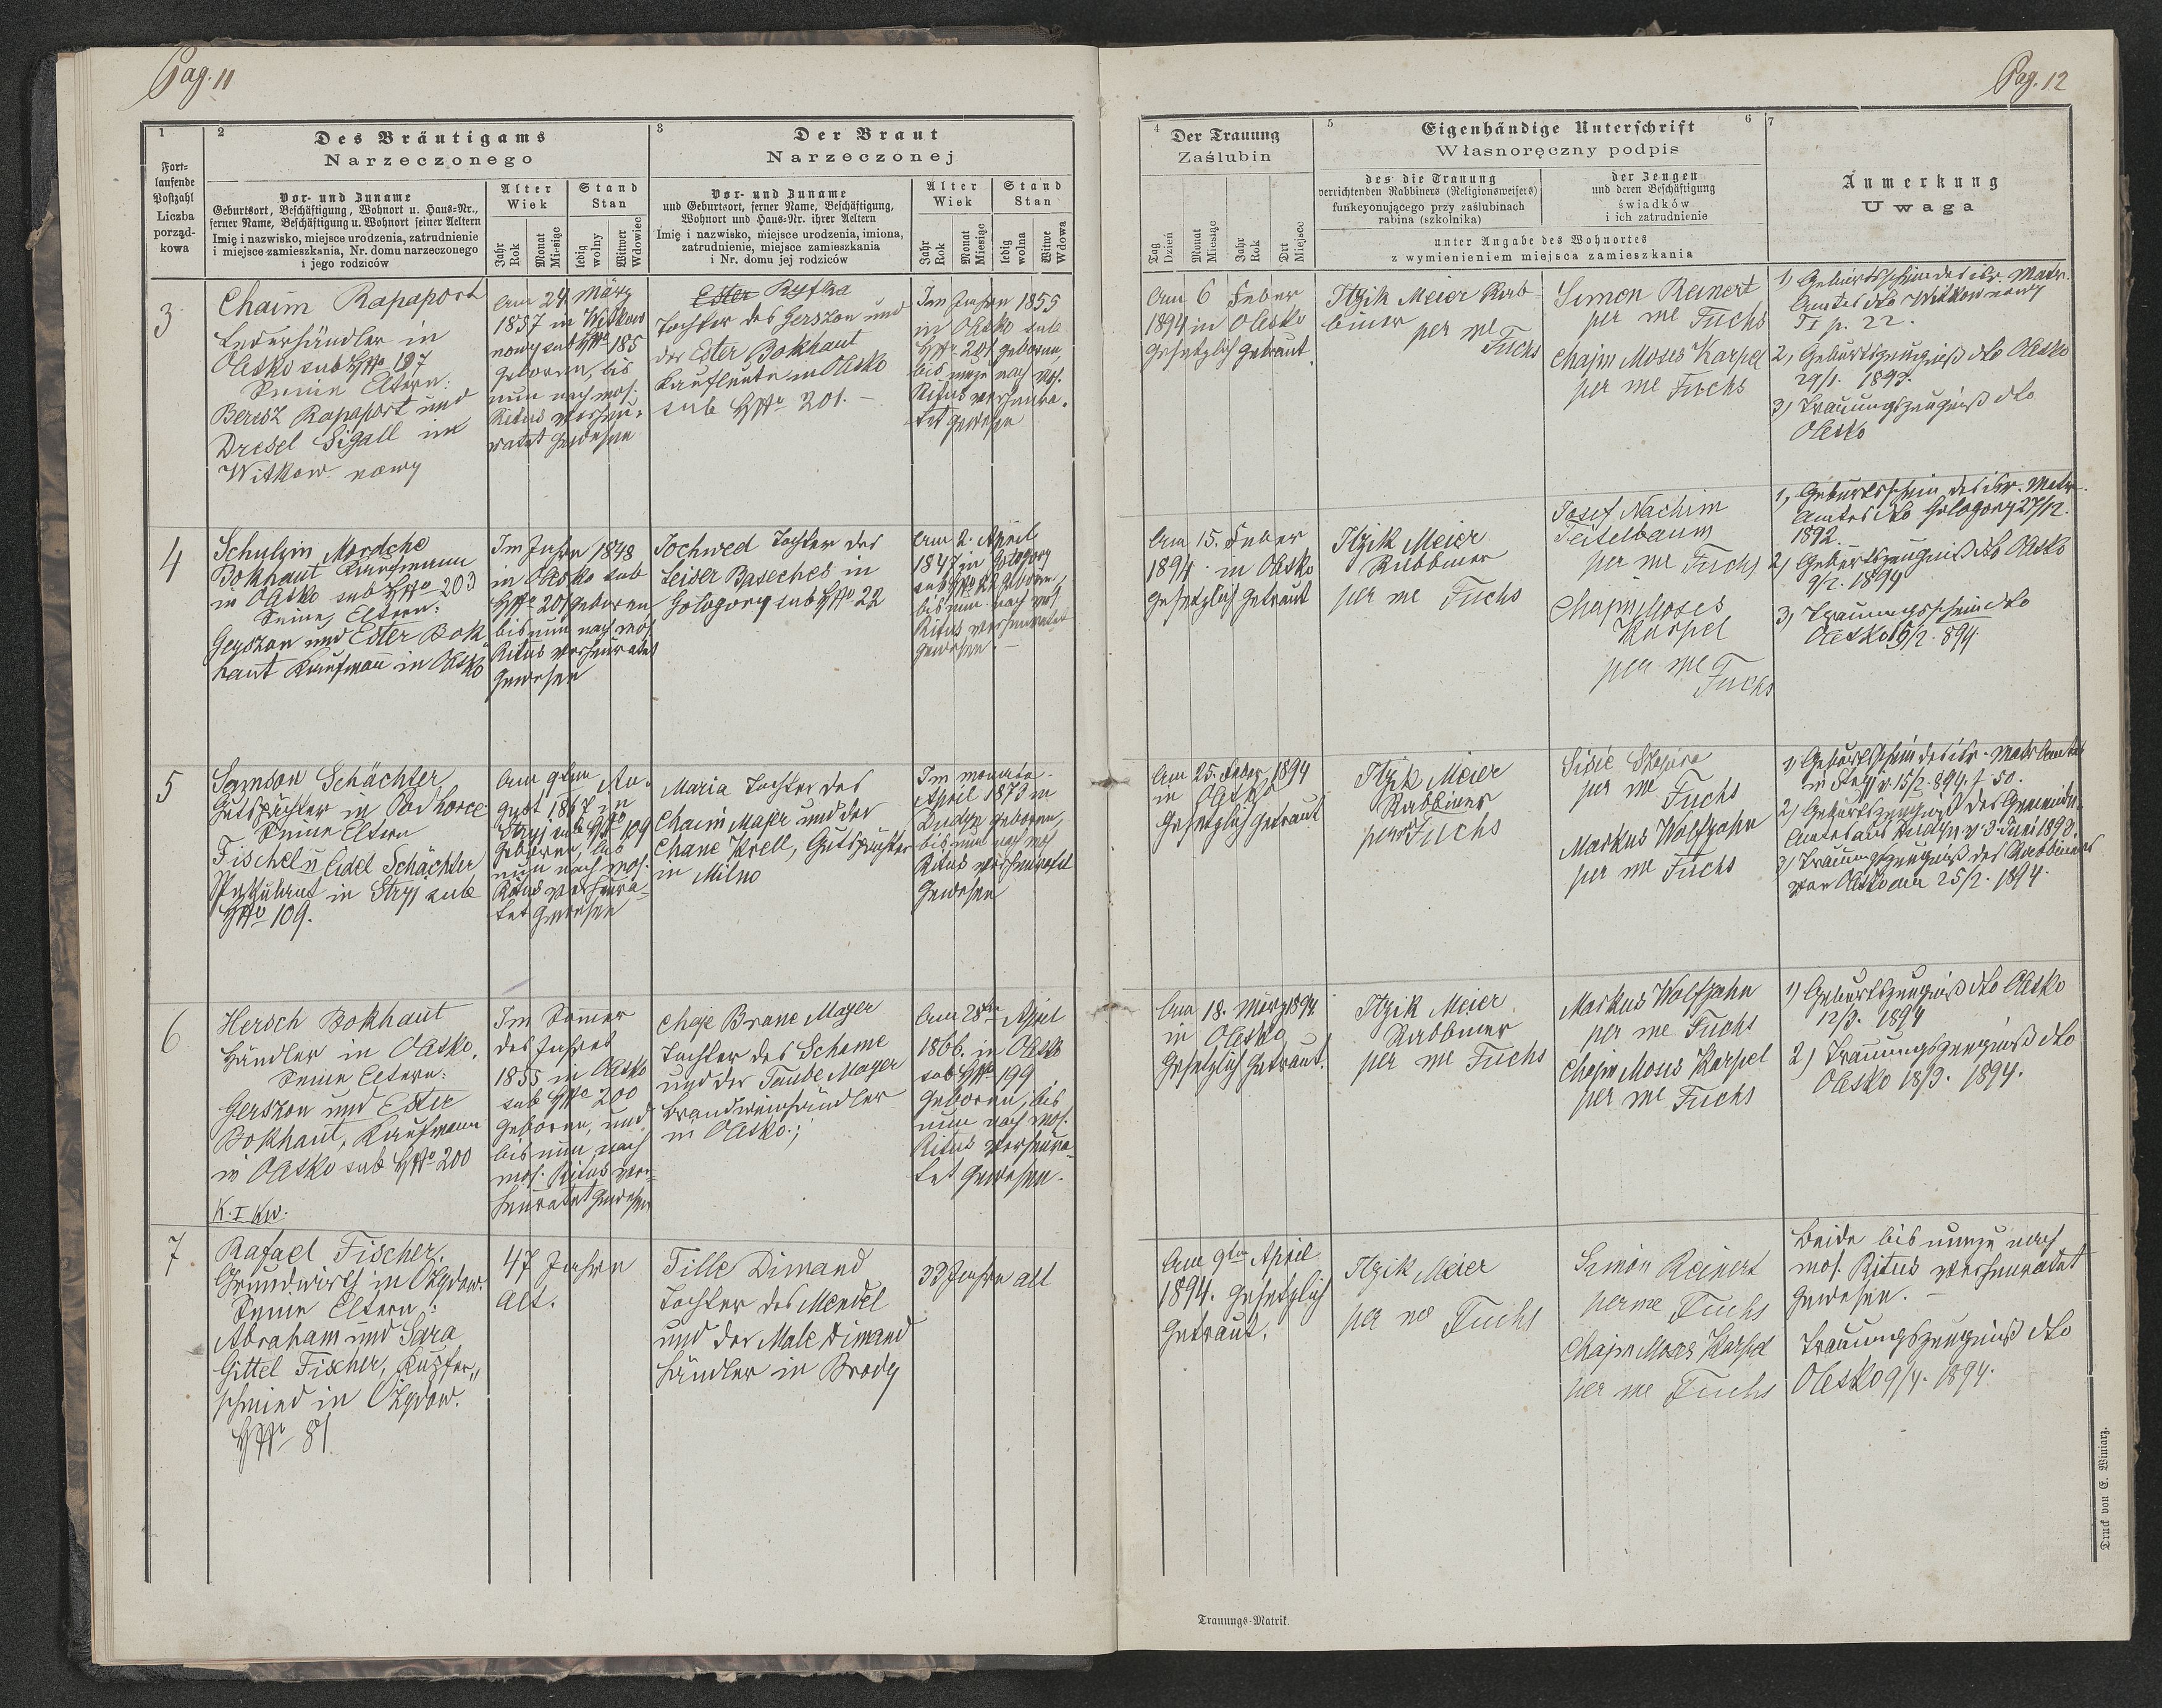 Pag. 11
1
Fort-
laufende
Postzahl
Liczba
porząd-
kowa
2
Des Bräutigams
Narzeczonego
Vor- und Zuname
Geburtsort, Beschäftigung, Wohnort u. Haus-Nr.,
ferner Name, Beschäftigung u. Wohnort seiner Aeltern
Imię i nazwisko, miejsce urodzenia, zatrudnienie
i miejsce zamieszkania, Nr. domu narzeczonego
i jego rodziców
Alter
Wiek
Jahr
Rok
Monat
Miesiąc
Stand
Stan
ledig
wolny
Witwer
Wdowiec
3
Der Braut
Narzeczonej
Vor- und Zuname
und Geburtsort, ferner Name, Beschäftigung,
Wohnort und Haus-Nr. ihrer Aeltern
Imię i nazwisko, miejsce urodzenia, imiona,
zatrudnienie, miejsce zamieszkania
i Nr. domu jej rodziców
Alter
Wiek
Jahr
Rok
Monat
Miesiąc
Stand
Stan
ledig
wolna
Witwe
Wdowa
3
Chaim Rapaport
Lederhändler in
Olesko sub HNo 197
Seine Eltern:
Berisz Rapaport und
Dresel Sigall in
Witkow nowy
Am 24. März
1857 in Witkow
nowy sub HNo 185
geboren, bis
nun nach mos.
Ritus verheu-
ratet gewesen
Ester Ryfka
Tochter des Gerszon und
der Ester Bokhaut
Kaufleute in Olesko
sub HNo 201. –
Im Jahre 1855
in Olesko sub
HNo 201 geboren,
bis nunzu nach mos.
Ritus verheura-
tet gewesen
4
Schulzin Mordche
Bokhaut Kaufmann
in Olesko sub HNo 203
Seine Eltern:
Gerszon und Ester Bok-
haut Kaufmann in Olesko
Im Jahre 1848
in Olesko sub
HNo 201 geboren
bis nun nach mos.
Ritus verheuratet
gewesen
Jochwed Tochter des
Leiser Baseches in
Gologory sub HNo 22
Am 2. April
1847 in Gologory
sub HNo 22 geboren,
bis nun nach mos.
Ritus verheuratet
gewesen. –
5
Samson Schächter
Gutspächter in Podhorce
Seine Eltern
Fischel u Eidel Schächter
in Stryj sub
HNo 109.
Am 9ten Au-
gust 1867 in
Stryj sub HNo 109
geboren, bis
nun nach mos.
Ritus verheura-
tet gewesen
Maria Tochter des
Chaim Majer und der
Chane Krell, Gutspächter
in Milno
Im monate
April 1873 in
Dudyn geboren,
bis nun nach mos
Ritus verheuratet
gewesen
6
Hersch Bokhaut
Händler in Olesko,
Seine Eltern:
Gerszon und Ester
Bokhaut, Kaufmann
in Olesko sub HNo 200
K. I Kw.
Im Sommer
des Jahres
1855 in Olesko
sub HNo 200
geboren, und
bis nun nach
mos. Ritus ver-
heuratet gewesen
Chaje Brane Mayer
Tochter des Scheme
und der Taube Mayer
Brandweinhändler
in Olesko.;
Am 28ten April
1866. in Olesko
sub HNo 199
geboren, bis
nun nach mos.
Ritus verheura-
tet gewesen.
7
Rafael Fischer,
Grundwirth in Ożydow.
Seine Eltern:
Abraham und Sara
Gittel Fischer, Kupfer„
schmied in Ożydow.
HNo 81
47 Jahre
alt.
Tille Dimand
Tochter des Mendel
und der Male Dimand
Händler in Brody
33 Jahre alt
Pag. 12
4
Der Trauung
Zaślubin
Tag
Dzień
Monat
Miesiąc
Jahr
Rok
Ort
Miejsce
5
Eigenhändige Unterschrift
Własnoręczny podpis
6
des die Trauung
verrichtenden Rabbiners (Religionsweisers)
funkcyonującego przy zaślubinach
rabina (szkolnika)
der Zeugen
und deren Beschäftigung
świadków
i ich zatrudnienie
unter Angabe des Wohnortes
z wymienieniem miejsca zamieszkania
7
Anmerkung
Uwaga
Am 6 Feber
1894 in Olesko
gesetzlich getraut
Itzik Meier Rab-
biner
per me
Fuchs
Simon Reinert
per me Fuchs
Chajm Moses Karpel
per me Fuchs
1) Geburtsschein des isr. Matr.
Amtes dto Witkow nowy
T I p. 22.
2, Geburtszeugniß dto Olesko
29/1. 1893.
3) Trauungszeugniß dto
Olesko
Am 15. Feber
1894 in Olesko
gesetzlich getraut
Itzik Meier
Rabbiner
per me Fuchs
Josef Nachim
Teitelbaum
per me Fuchs
Chajm Moses
Karpel
per me
Fuchs
1, Geburtsschein des isr. Matr.
Amtes dto Gologory 27/12.
1892.
2) Geburtszeugniß dto Olesko
9/2. 1894
3, Trauungsschein dto
Olesko 15/2. 894.
Am 25. Feber 1894
in Olesko
gesetzlich getraut
Itzik Meier
Rabbiner
per me Fuchs
per me Fuchs
Markus Wolfzahn
per me Fuchs
1) Geburtsschein des isr. Matr. Amtes
in Stryj v. 15/2. 894. f. 50.
2) Geburtszeugniß des Gemeinde-
Amtes aus Dudyn v. 3. Juni 1893.
3) Trauungszeugniß des Rabbiners
von Olesko den 25/2. 1894.
Am 18. März 1894
in Olesko
gesetzlich getraut.
Itzik Meier
Rabbiner
per me Fuchs
Markus Wolfzahn
per me Fuchs
Chajm Moses Karpel
per me Fuchs
1) Geburtszeugniß dto Olesko
12/3. 1894
2) Trauungszeugniß dto
Olesko 18/3. 1894.
Am 9ten April
1894. gesetzlich
getraut.
Itzik Meier
per me Fuchs
Simon Reinert
per me Fuchs
Chajm Moses Karpel
per me Fuchs
Beide bis nunzu nach
mos. Ritus verheuratet
gewesen. –
Trauungszeugniß dto
Olesko 9/4. 1894.
Trauungs-Matrik.
Druck von E. Winiarz.